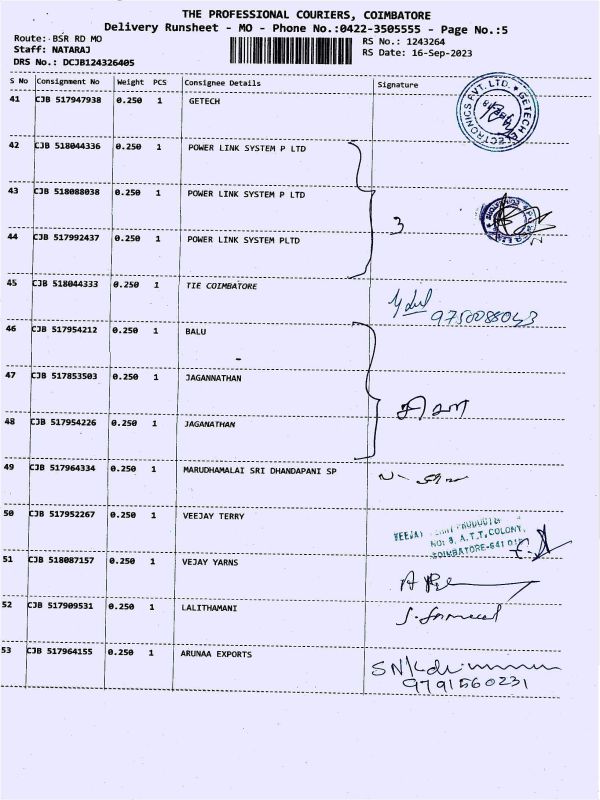 THE PROFESSIONAL COURIERS, COIMBATORE
Delivery Runsheet - MO - Phone No.:0422-3505555 - Page No.:5
Route: BSR RD MO
RS No.: 1243264
Staff: NATARAJ
RS Date: 16-Sep-2023
DRS No.: DCJB124326405
S No Consignment No Weight PCS Consignee Details Signature
41 CJB 517947938 0.250 1 GETECH
GETECH ELECTRONICS PVT. LTD.
42 CJB 518044336 0.250 1 POWER LINK SYSTEM P LTD
43 CJB 518088038 0.250 1 POWER LINK SYSTEM P LTD
3
44 CJB 517992437 0.250 1 POWER LINK SYSTEM PLTD
45 CJB 518044333 0.250 1 TIE COIMBATORE
9750088043
46 CJB 517954212 0.250 1 BALU
47 CJB 517853503 0.250 1 JAGANNATHAN
48 CJB 517954226 0.250 1 JAGANATHAN
49 CJB 517964334 0.250 1 MARUDHAMALAI SRI DHANDAPANI SP
50 CJB 517952267 0.250 1 VEEJAY TERRY
VEEJAY TERRY PRODUCTS
NO: 9, A.T.T. COLONY,
COIMBATORE-641 018
51 CJB 518087157 0.250 1 VEJAY YARNS
52 CJB 517909531 0.250 1 LALITHAMANI
53 CJB 517964155 0.250 1 ARUNAA EXPORTS
9791560231